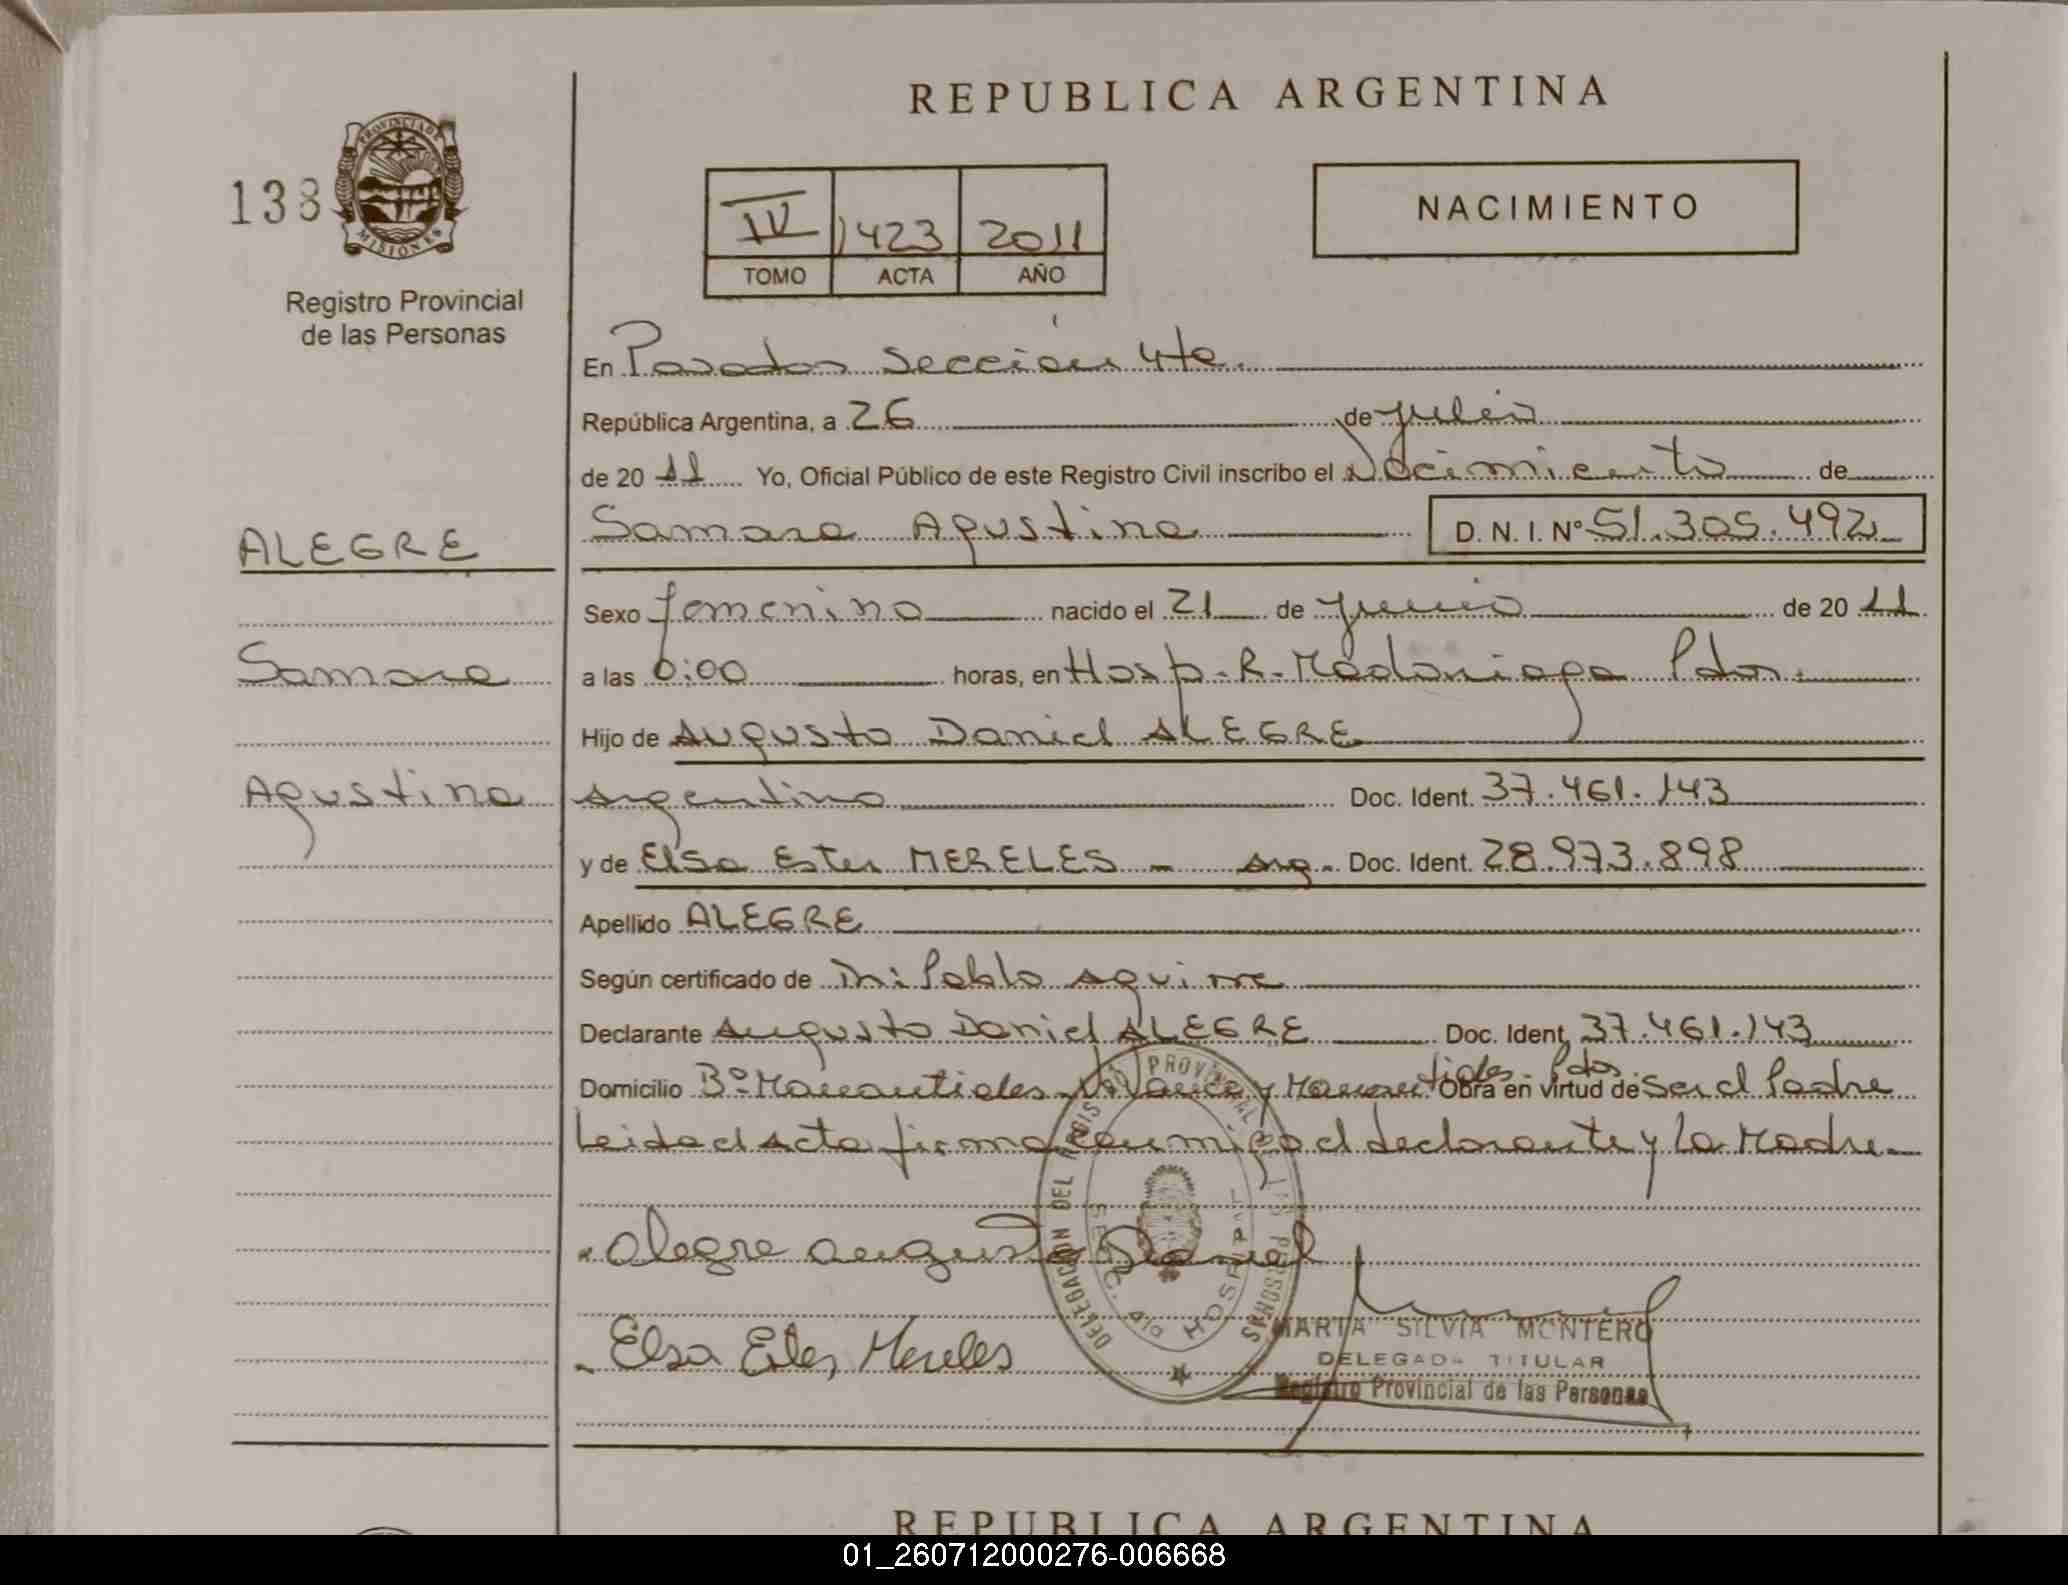 REPUBLICA ARGENTINA
138
PROVINCIA DE
MISIONES
Registro Provincial
de las Personas
IV 1423 2011
TOMO ACTA AÑO
NACIMIENTO
En Posadas Sección 4ta.
República Argentina, a 26 de julio
de 2011 Yo, Oficial Público de este Registro Civil inscribo el Nacimiento de
Samara Agustina D. N. I. Nº 51.305.492
ALEGRE
Samara
Agustina
Sexo femenino nacido el 21 de junio de 2011
a las 0:00 horas, en Hosp. R. Madariaga Pdas.
Hijo de Augusto Daniel ALEGRE
Argentino Doc. Ident. 37.461.143
y de Elsa Ester MERELES - Arg. Doc. Ident. 28.973.898
Apellido ALEGRE
Según certificado de Pablo Aguirre
Declarante Augusto Daniel ALEGRE Doc. Ident. 37.461.143
Domicilio Bº Manantiales y Manantiales Pdas. Obra en virtud de Ser el Padre
Leida el Acta firma conmigo el declarante y la Madre
Alegre augusto Daniel
Elsa Ester Mereles
DELEGACION DEL REGISTRO PROVINCIAL DE LAS PERSONAS
SECC. 4ta HOSPITAL
MARTA SILVIA MONTERO
DELEGADA TITULAR
Registro Provincial de las Personas
REPUBLICA ARGENTINA
01_260712000276-006668